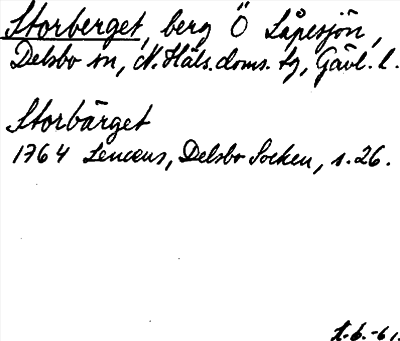 Storberget, berg Ö Låpesjön,
Delsbo sn, N. Häls. doms. tg, Gävl. l.
Storbärget
1764 Lenæus, Delsbo Socken, s. 26.
-61.